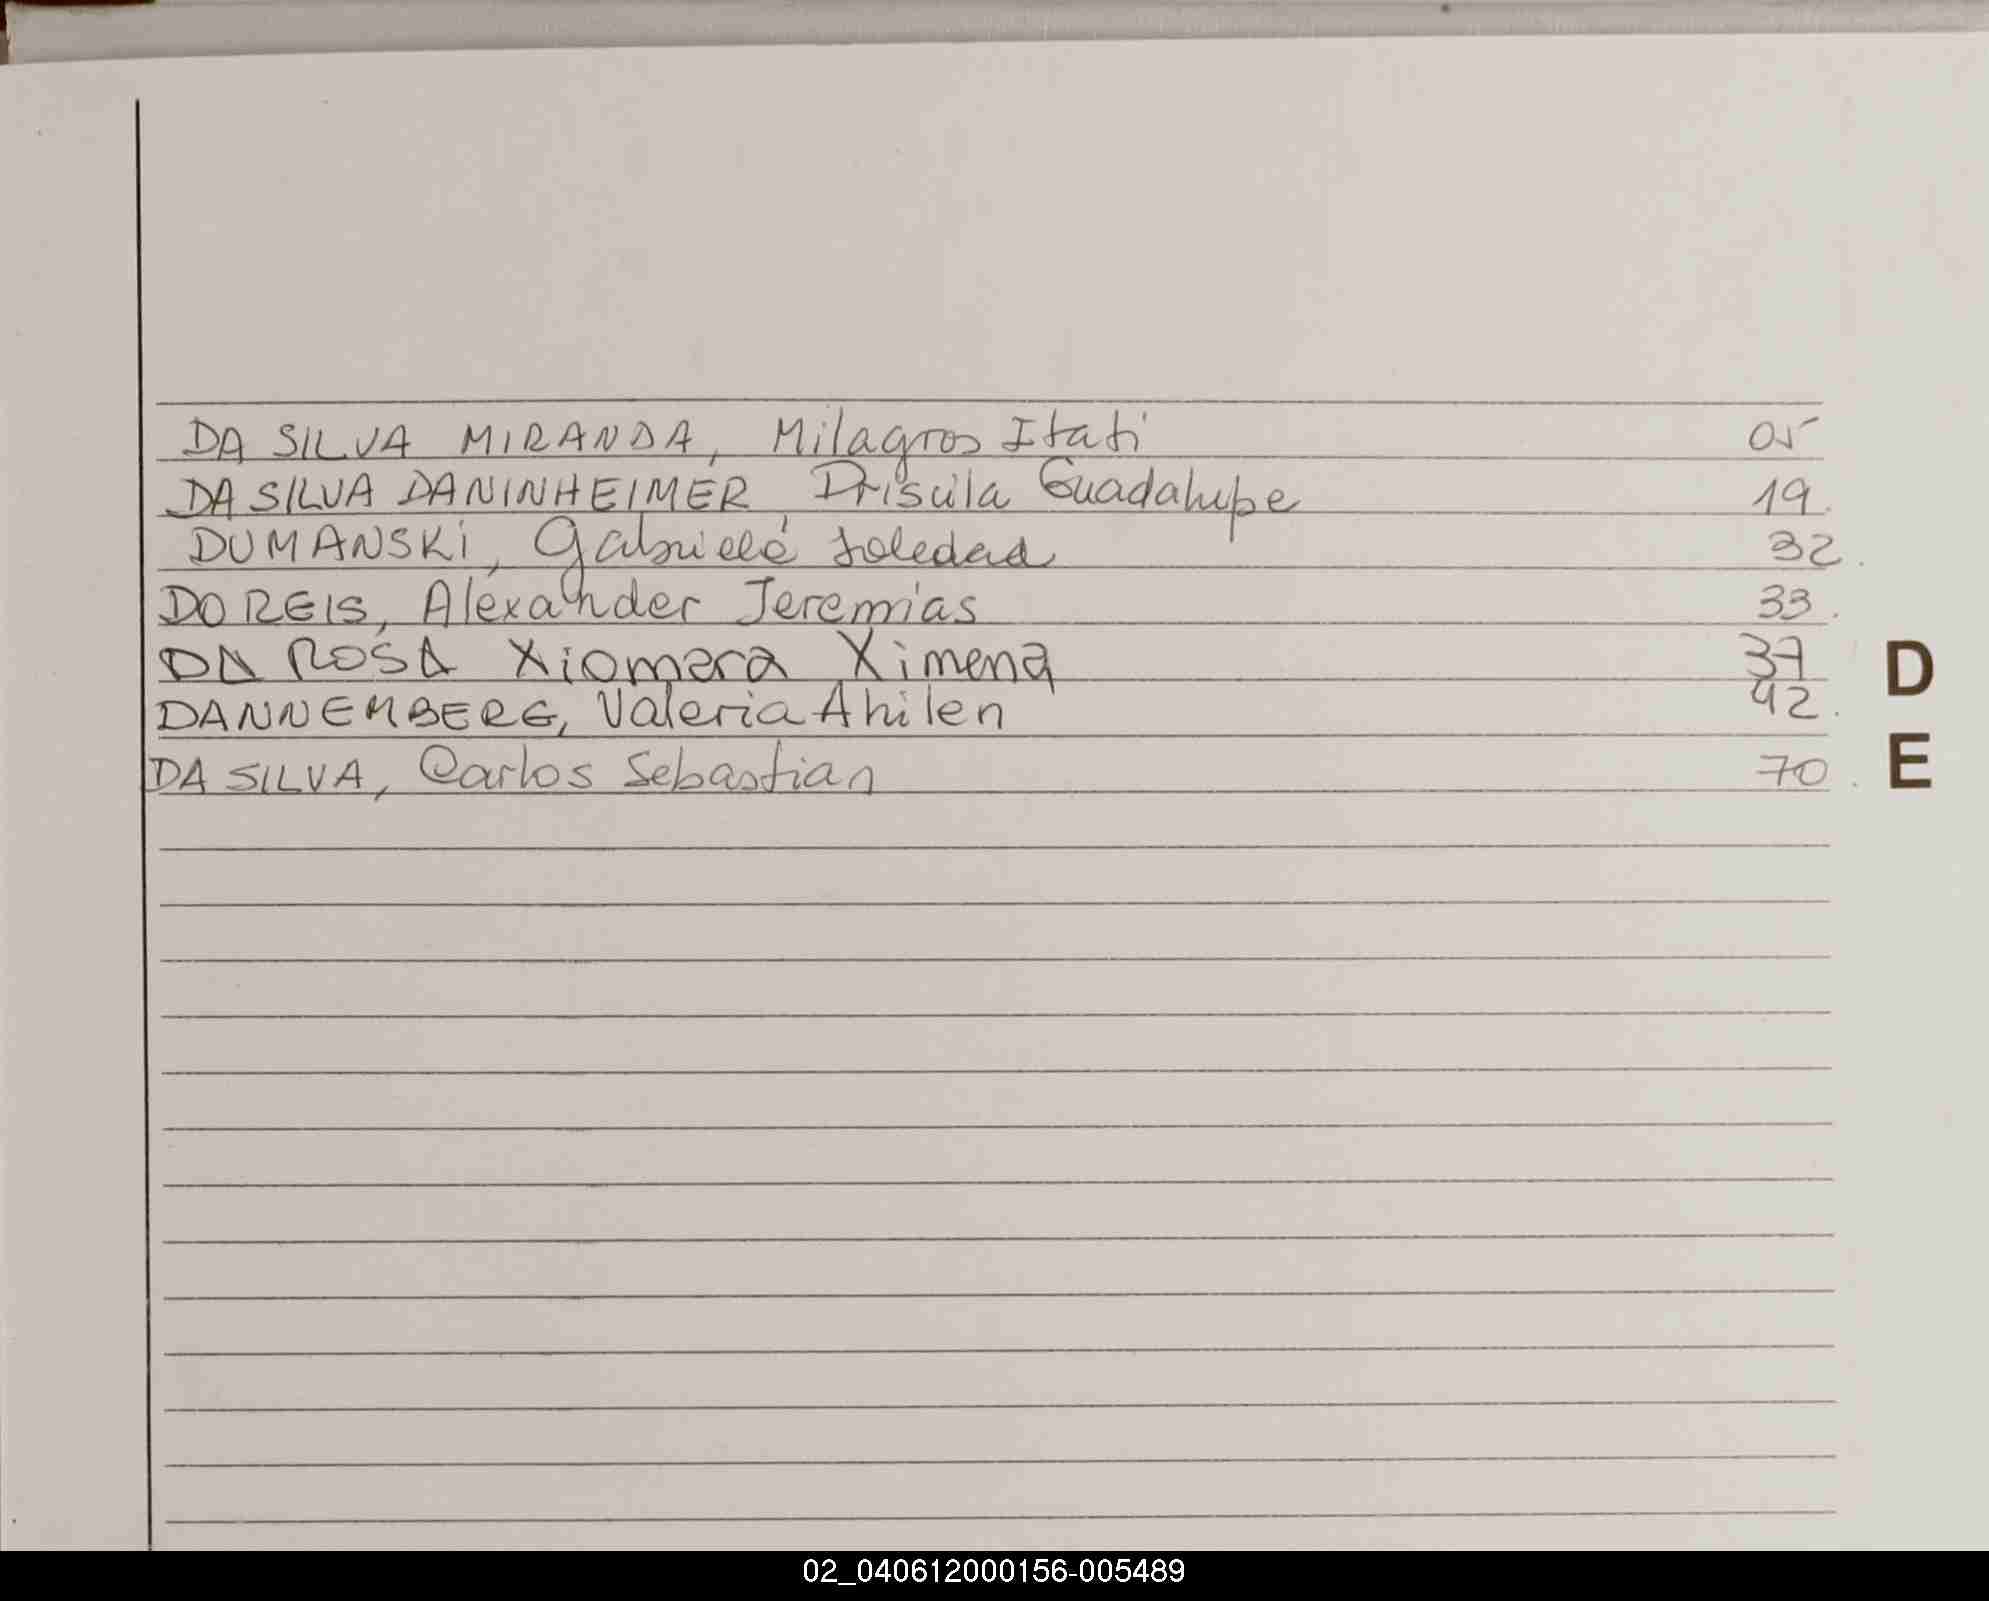 DA SILVA MIRANDA, Milagros Itati 05
DA SILVA DANINHEIMER Priscila Guadalupe 19.
DUMANSKI, Gabriela Soledad 32.
DO REIS, Alexander Jeremias 33.
DA ROSA Xiomara Ximena 37
DANNEMBERG, Valeria Ahilen 42.
DA SILVA, Carlos Sebastian 70.
D
E
02_040612000156-005489